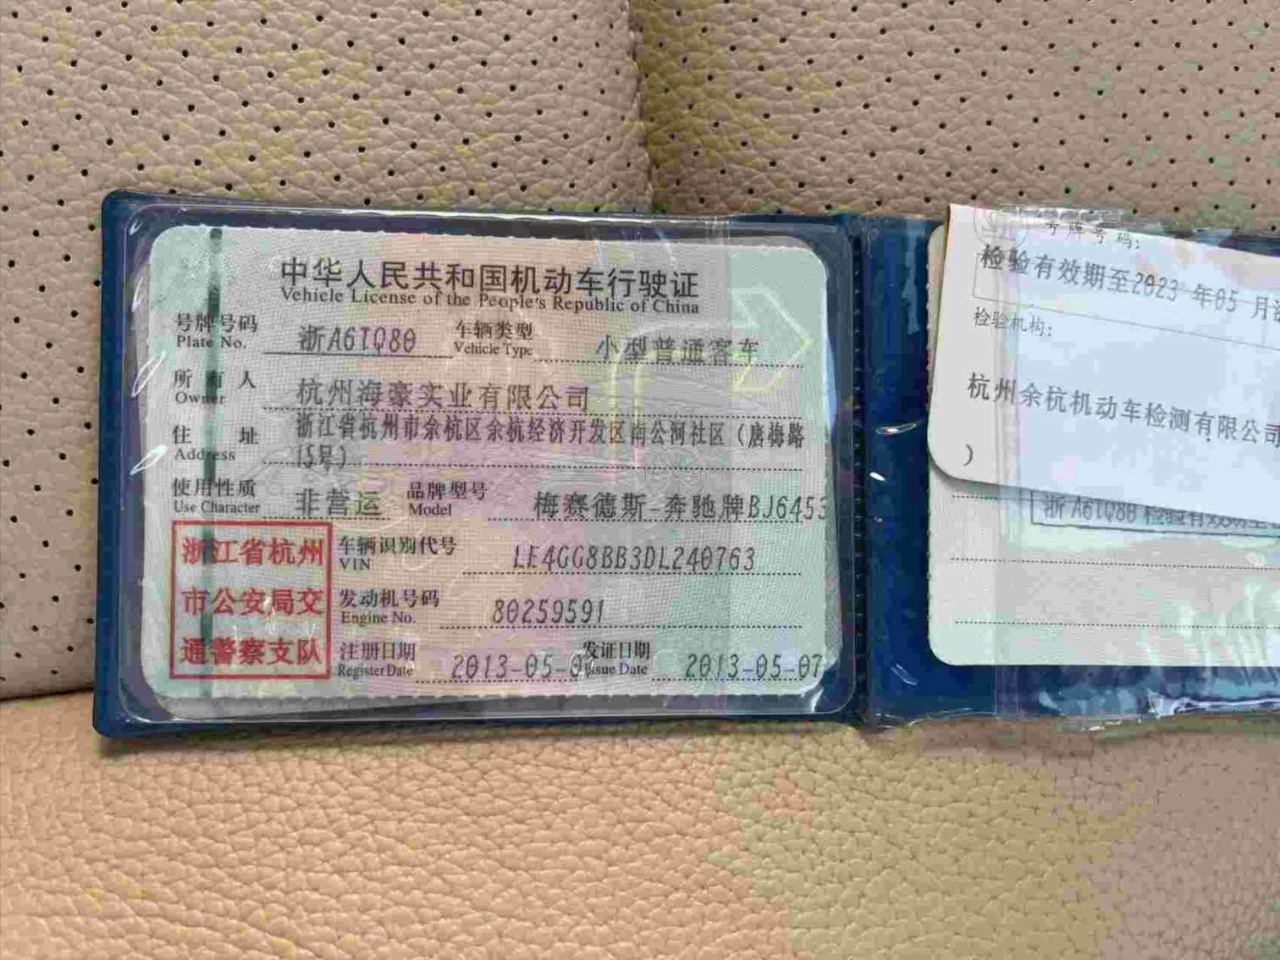 中华人民共和国机动车行驶证
Vehicle License of the People's Republic of China
号牌号码 浙A6TQ80 车辆类型 小型普通客车
Plate No. Vehicle Type
所有人 杭州海豪实业有限公司
Owner
住址 浙江省杭州市余杭区余杭经济开发区南公河社区（唐梅路
Address 15号）
使用性质 非营运 品牌型号 梅赛德斯-奔驰牌BJ6453
Use Character Model
浙江省杭州
市公安局交
通警察支队
车辆识别代号 LE4GG8BB3DL240763
VIN
发动机号码 80259591
Engine No.
注册日期 2013-05-0 发证日期 2013-05-07
Register Date Issue Date
号牌号码:
检验有效期至2023 年05 月
检验机构:
杭州余杭机动车检测有限公司
)
浙A6TQ80 检验有效期至